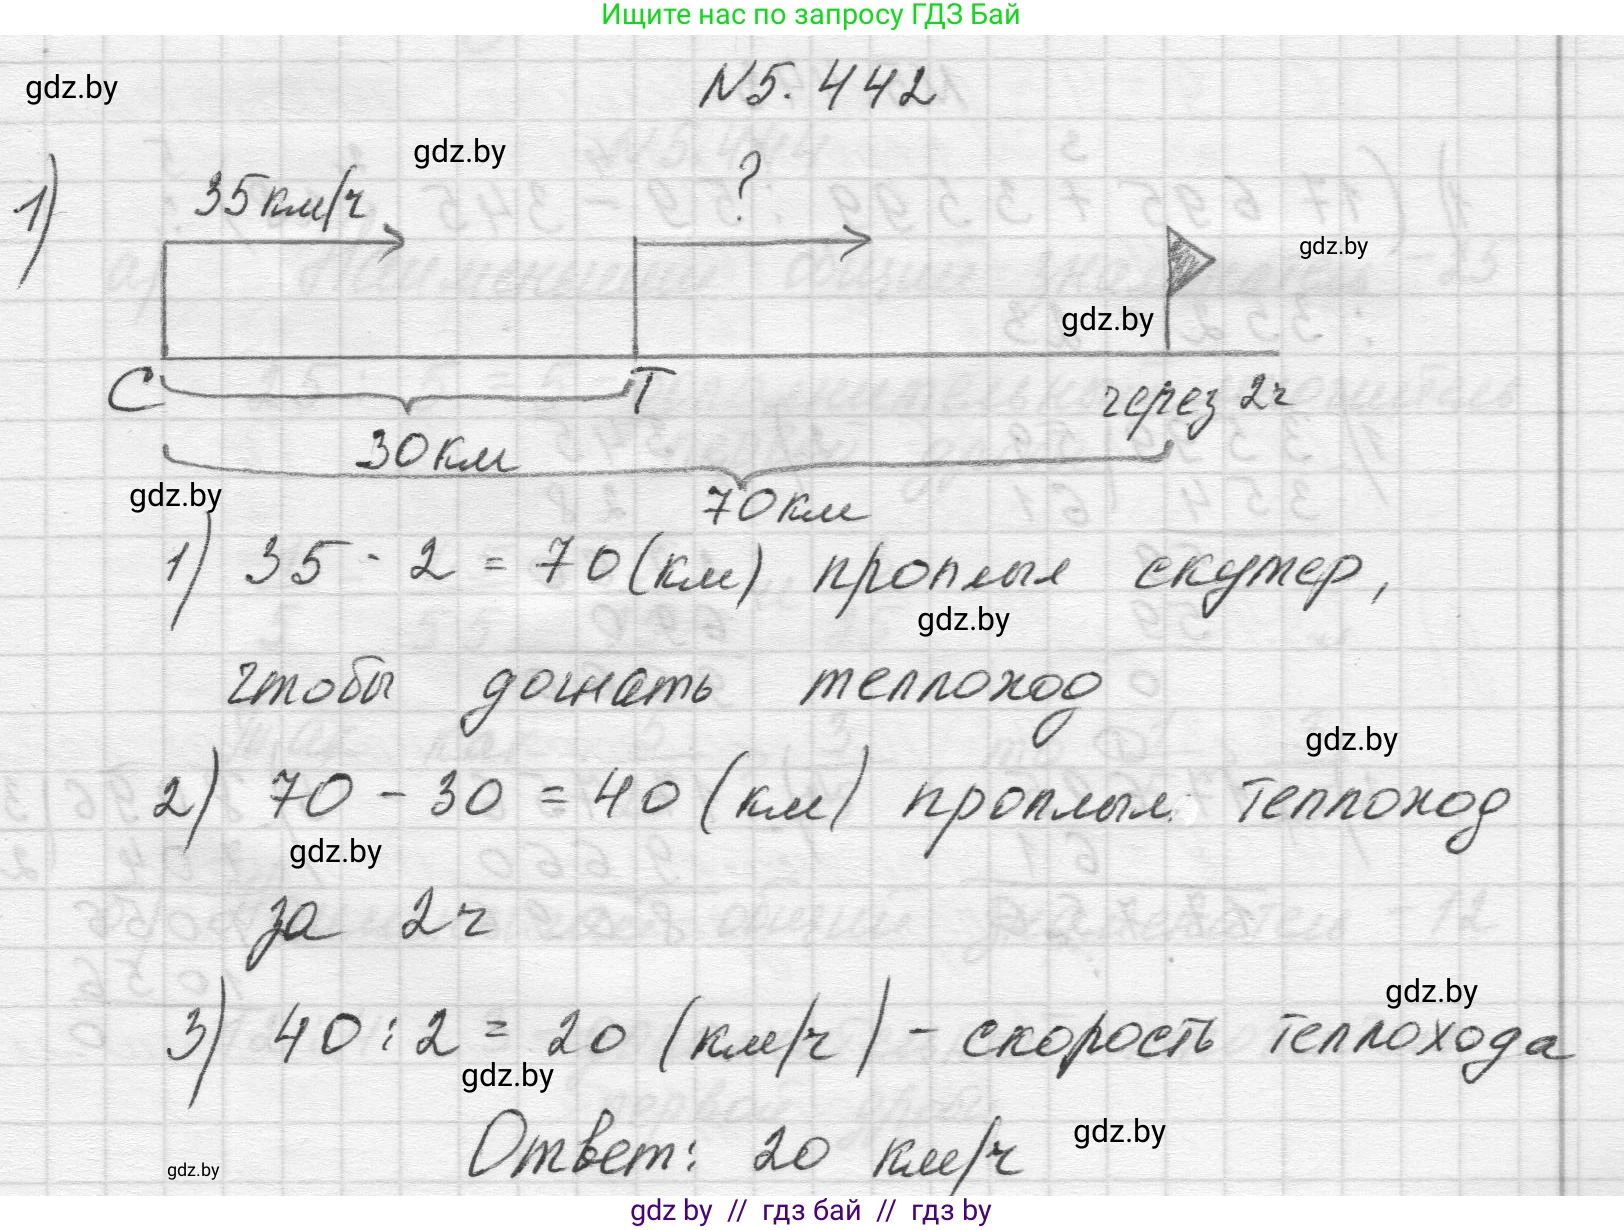 Ищите нас по запросу ГДЗ Бай
gdz.by
N5.442
gdz.by
1)
35км/ч
?
gdz.by
gdz.by
С
Т
через 2ч
30км
gdz.by
70км
1) 35 · 2 = 70 (км) проплыл скутер,
gdz.by
чтобы догнать теплоход
gdz.by
2) 70 - 30 = 40 (км) проплыл теплоход
gdz.by
за 2ч
gdz.by
3) 40 : 2 = 20 (км/ч) - скорость теплохода
gdz.by
Ответ: 20 км/ч
gdz.by
gdz.by
gdz by // гдз бай // гдз by